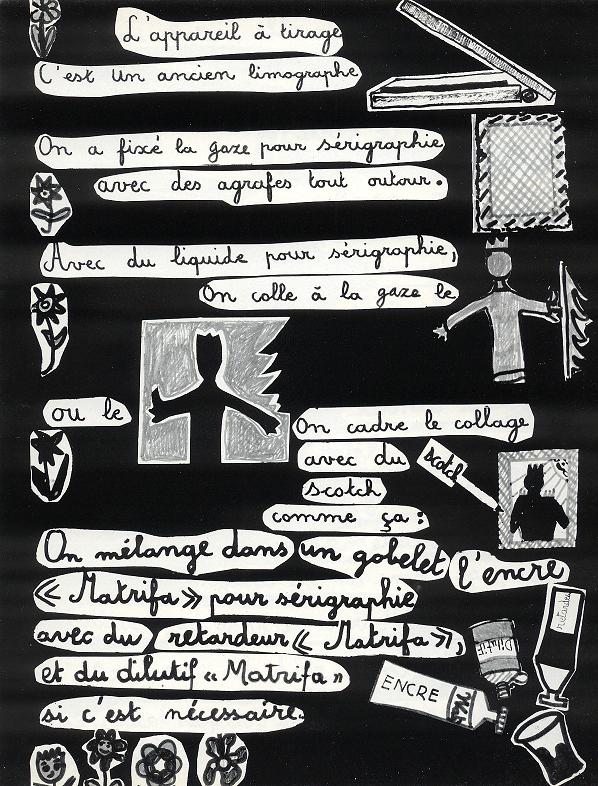 L'appareil à tirage
C'est un ancien limographe
On a fixé la gaze pour sérigraphie
avec des agrafes tout outour.
Avec du liquide pour sérigraphie,
On colle à la gaze le
ou le
On cadre le collage
avec du
scotch
scotch
comme ça :
On mélange dans un gobelet l'encre
« Matrifa » pour sérigraphie
avec du retardeur « Matrifa »,
et du dilutif « Matrifa »
si c'est nécessaire.
retardeur
DILUTIF
ENCRE